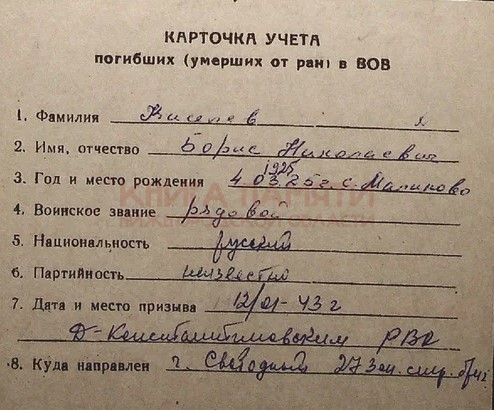 КАРТОЧКА УЧЕТА
погибших (умерших от ран) в ВОВ
1. Фамилия Киселев
2. Имя, отчество Борис Николаевич
1925
3. Год и место рождения 4.03.25г. с. Малиново
КНИГА ПАМЯТИ
НИЖЕГОРОДСКОЙ ОБЛАСТИ
4. Воинское звание рядовой
5. Национальность русский
6. Партийность неизвестно
7. Дата и место призыва 12/01-43 г
Д-Константиновским РВК
8. Куда направлен г. Свободный 27 зап. стр. бриг